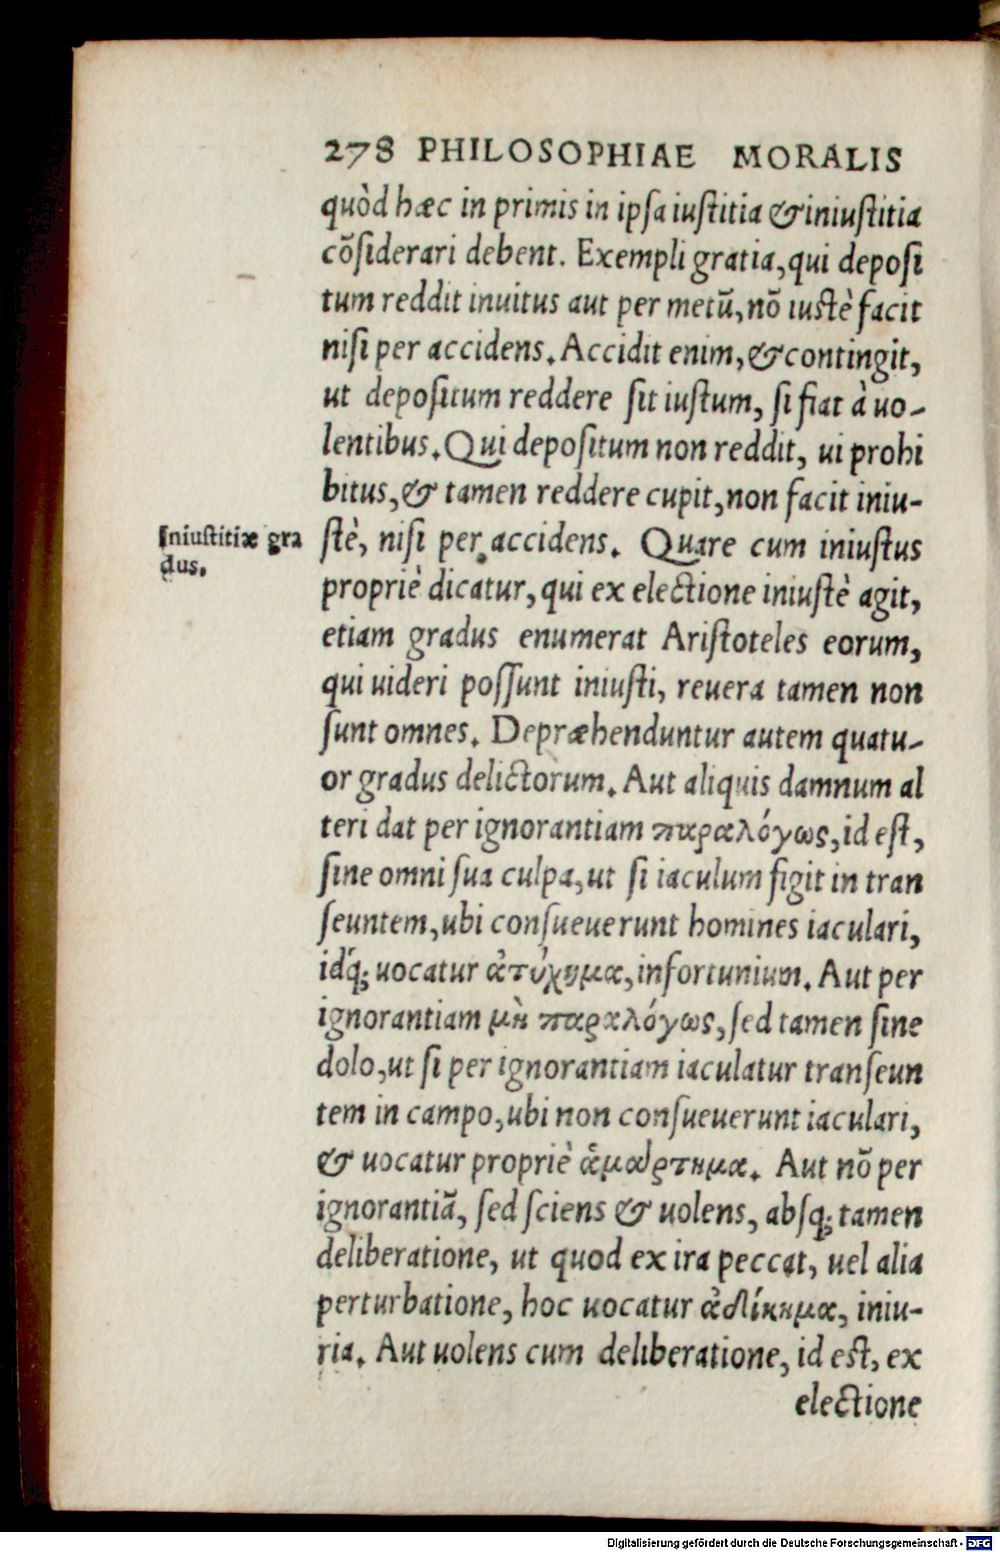 278 PHILOSOPHIAE MORALIS
quòd hæc in primis in ipsa iustitia & iniustitia
cõsiderari debent. Exempli gratia, qui deposi
tum reddit inuitus aut per metũ, nõ iustè facit
nisi per accidens. Accidit enim, & contingit,
ut depositum reddere sit iustum, si fiat à uo-
lentibus. Qui depositum non reddit, ui prohi
bitus, & tamen reddere cupit, non facit iniu-
Iniustitiæ gra
dus.
stè, nisi per accidens. Quare cum iniustus
propriè dicatur, qui ex electione iniustè agit,
etiam gradus enumerat Aristoteles eorum,
qui uideri possunt iniusti, reuera tamen non
sunt omnes. Depræhenduntur autem quatu-
or gradus delictorum. Aut aliquis damnum al
teri dat per ignorantiam παραλόγως, id est,
sine omni sua culpa, ut si iaculum figit in tran
seuntem, ubi consueuerunt homines iaculari,
idq́; uocatur ἀτύχημα, infortunium. Aut per
ignorantiam μὴ παραλόγως, sed tamen sine
dolo, ut si per ignorantiam iaculatur transeun
tem in campo, ubi non consueuerunt iaculari,
& uocatur propriè ἁμάρτημα. Aut nõ per
ignorantiã, sed sciens & uolens, absq; tamen
deliberatione, ut quod ex ira peccat, uel alia
perturbatione, hoc uocatur ἀδίκημα, iniu-
ria. Aut uolens cum deliberatione, id est, ex
electione
Digitalisierung gefördert durch die Deutsche Forschungsgemeinschaft - DFG